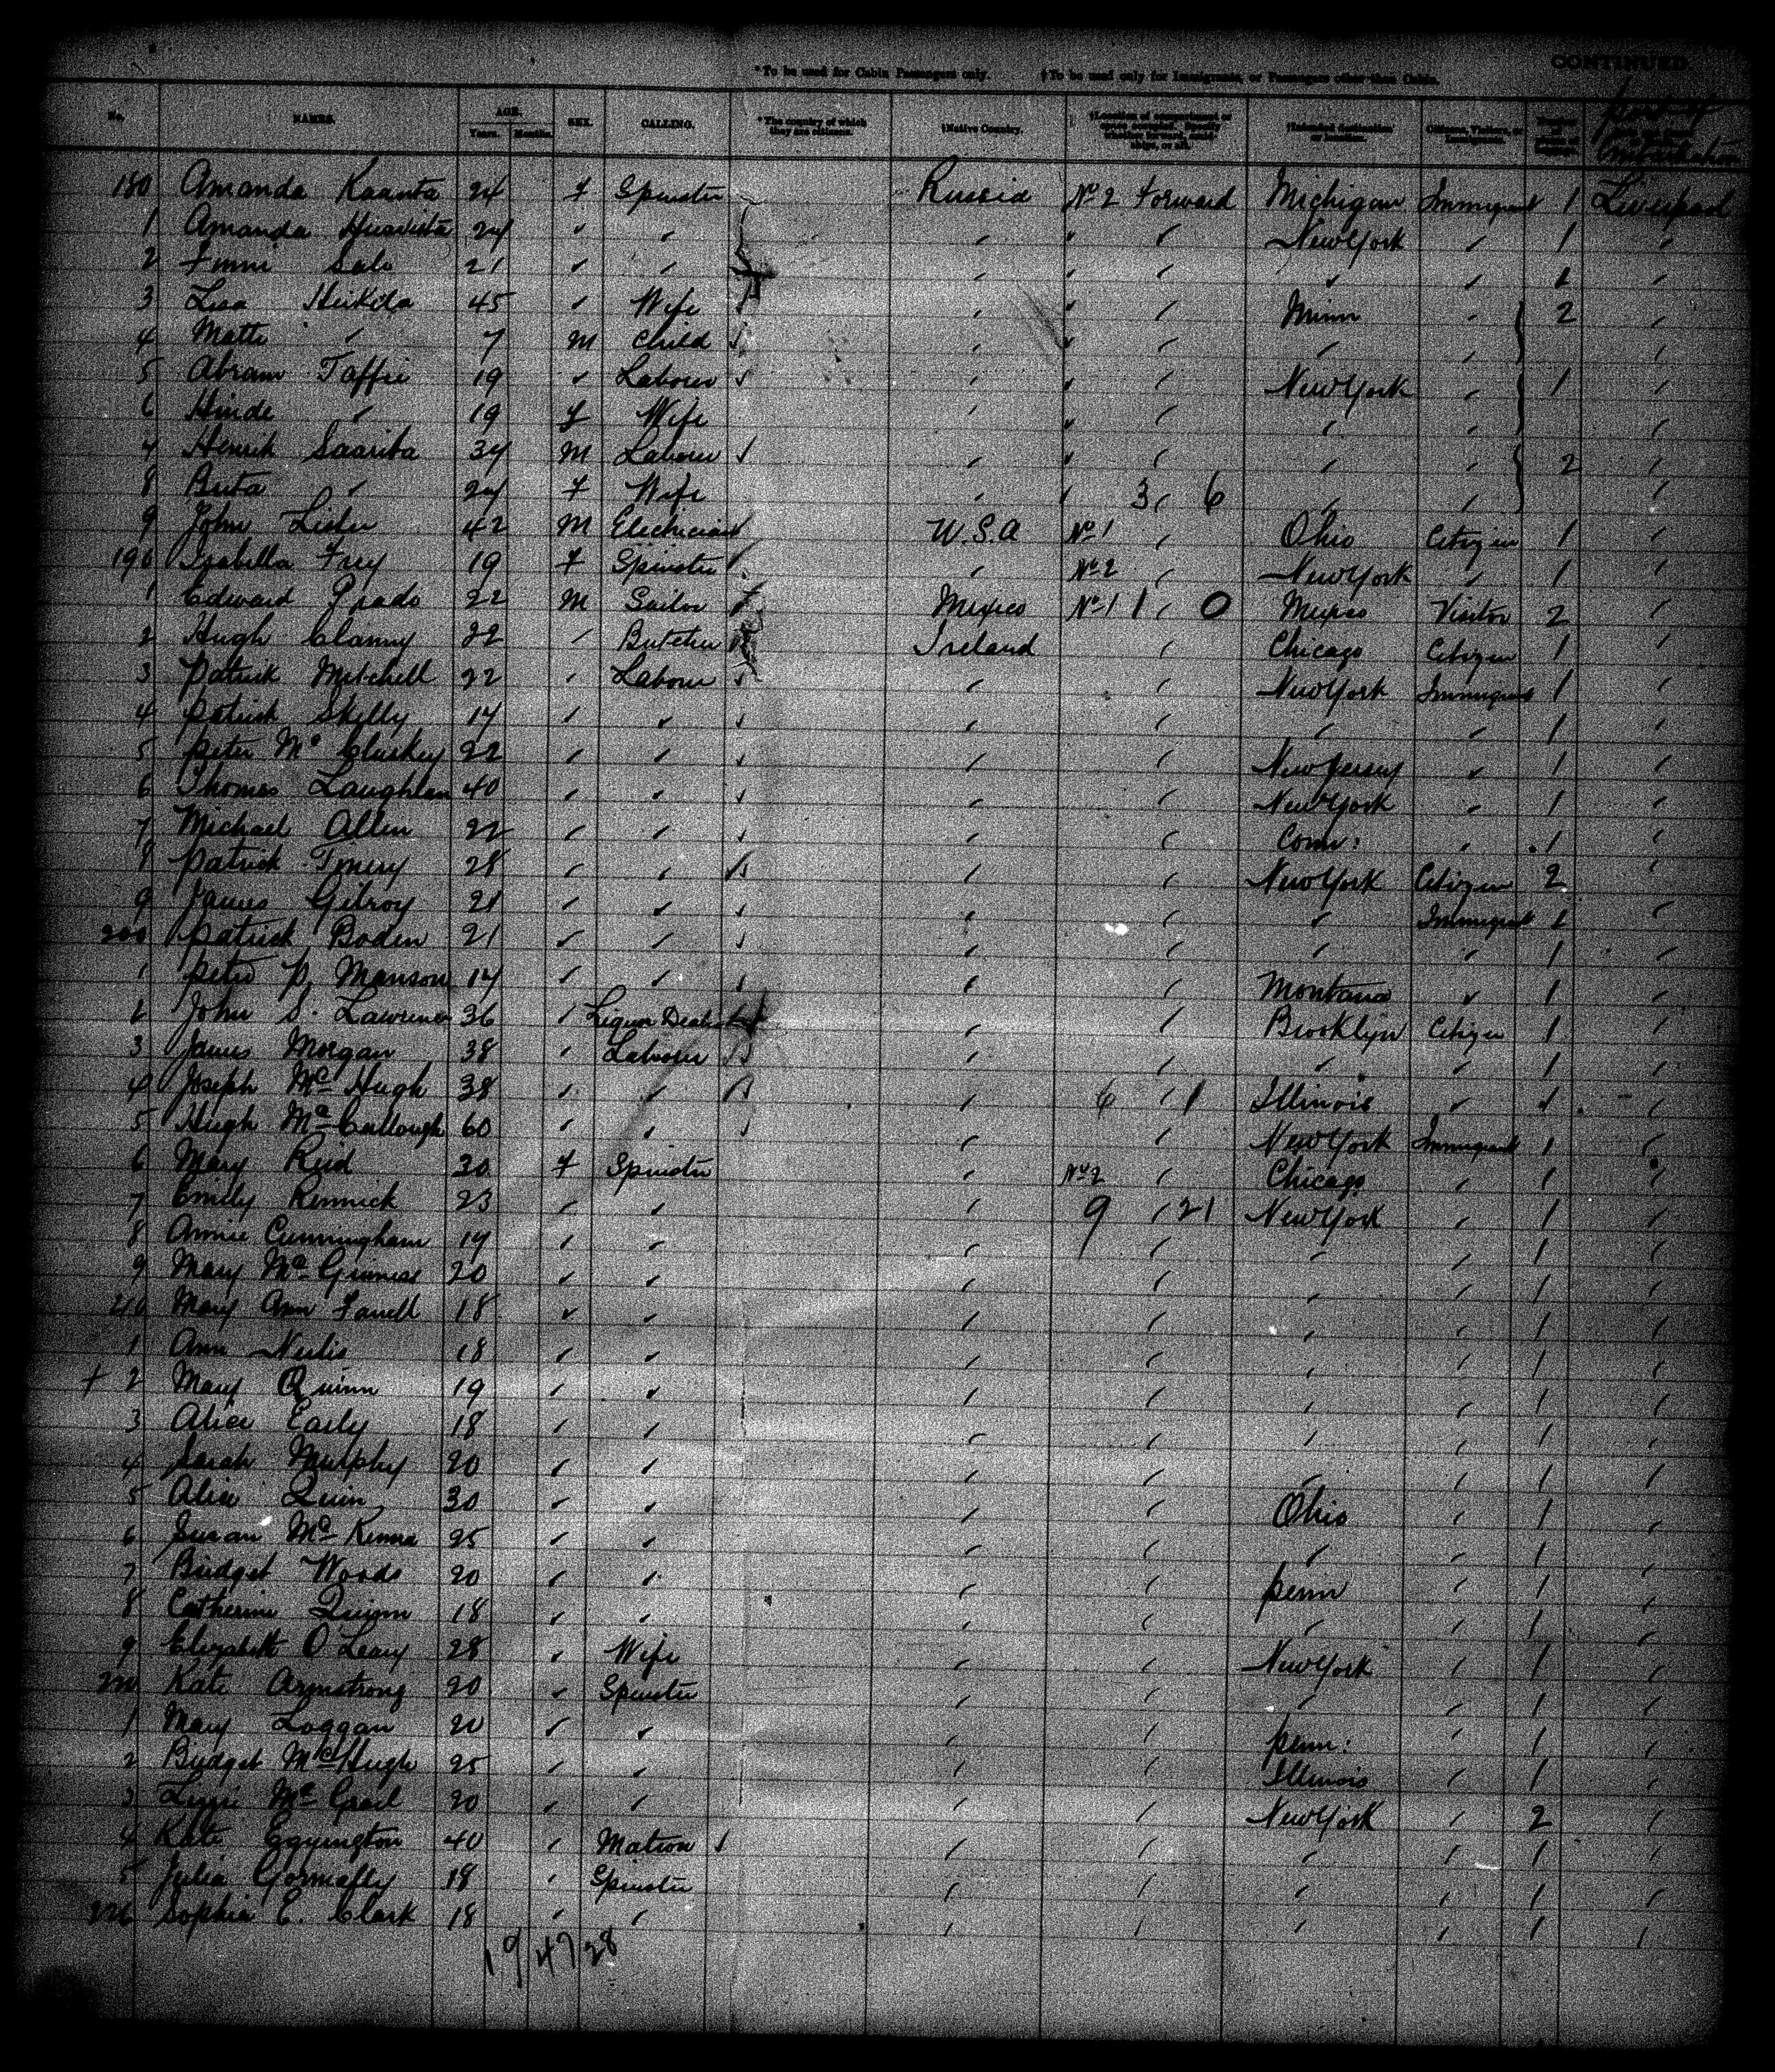 CONTINUED.
*To be used for Cabin Passengers only. †To be used only for Immigrants, or Passengers other than Cabin.
No. NAMES. AGE. Years. Months. SEX. CALLING. *The country of which they are citizens. †Native Country. †Intended destination or location. Citizens, Visitors, or Immigrants. Port of Embarkation
180 Amanda Kaanta 24 f Spinster Russia No 2 Forward Michigan Immigrant 1 Liverpool
1 Amanda 24 " " " " " New York " 1 "
2 Salo 21 " " " " " " " 1 "
3 Lisa Heikila 45 " Wife " " " Minn " 2 "
4 Matti " 7 M Child " " " " " "
5 Abram Taffie 19 " Labourer " " " New York " 1 "
6 Hinde " 19 f Wife " " " " " "
7 Henrik Saarita 34 M Labourer " " " " " 2 "
8 " 24 f Wife " " 3 " 6 " " "
9 John Lister 42 M Electrician U.S.A No 1 " Ohio Citizen 1 "
190 Isabella Frey 19 f Spinster " No 2 " New York " 1 "
1 Edward Prado 22 M Sailor Mexico No 1 1 " 0 Mexico Visitor 2 "
2 Hugh Clanny 22 " Butcher Ireland " Chicago Citizen 1 "
3 Patrick Mitchell 22 " Labourer " " New York Immigrant 1 "
4 Patrick Skelly 17 " " " " " " 1 "
5 Peter Mc Cluskey 22 " " " " New Jersey " 1 "
6 Thomas Laughlan 40 " " " " New York " 1 "
7 Michael Allen 22 " " " " Conn: " 1 "
8 Patrick 28 " " " " New York Citizen 2 "
9 James Gilroy 21 " " " " " Immigrant 1 "
200 Patrick Boden 21 " " " " " " 1 "
1 Peter P. Manson 17 " " " " Montana " 1 "
2 John S. Lawrence 36 " Liquor Dealer " " Brooklyn Citizen 1 "
3 James Morgan 38 " Labourer " " " " 1 "
4 Joseph Mc Hugh 38 " " " 6 " 1 Illinois " 1 "
5 Hugh Mc Cullough 60 " " " " New York Immigrant 1 "
6 Mary Reid 30 f Spinster " No 2 " Chicago " 1 "
7 Emily Rennick 23 " " " 9 " 21 New York " 1 "
8 Annie Cunningham 17 " " " " " " 1 "
9 Mary Mc Guiness 20 " " " " " " 1 "
210 Mary Ann Farrell 18 " " " " " " 1 "
1 Ann Neilis 18 " " " " " " 1 "
+ 2 Mary Quinn 19 " " " " " " 1 "
3 Alice Early 18 " " " " " " 1 "
4 Sarah Murphy 20 " " " " " " 1 "
5 Alice Quin 30 " " " " Ohio " 1 "
6 Susan Mc Kenna 25 " " " " " " 1 "
7 Bridget Woods 20 " " " " Penn " 1 "
8 Catherine Quinn 18 " " " " " " 1 "
9 Elizabeth O'Leary 28 " Wife " " New York " 1 "
220 Kate Armstrong 20 " Spinster " " " " 1 "
1 Mary Loggan 20 " " " " Penn: " 1 "
2 Bridget McHugh 25 " " " " Illinois " 1 "
3 Lizzie Mc Grail 20 " " " " New York " 2 "
4 Kate Eggington 40 " Matron " " " " 1 "
5 Julia Gormally 18 " Spinster " " " " 1 "
226 Sophia E. Clark 18 " " " " " " 1 "
19/47 28